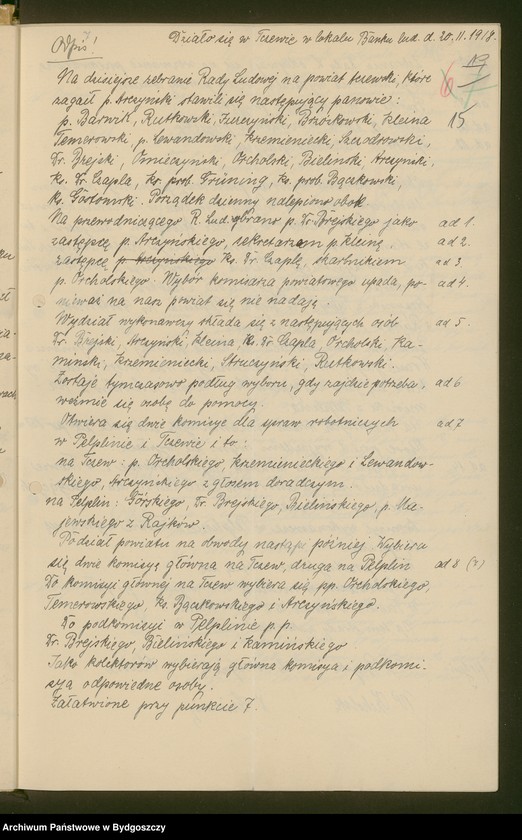 Odpis!
Działo się w Tczewie w lokalu Banku lud. d. 20. II. 1918.
19
6
7
15
Na dzisiejsze zebranie Rady Ludowej na powiat tczewski, które
zagaił p. Arczyński stawili się następujący panowie:
p. Barnik, Rutkowski, Brzóskowski, Kleina
Temerowski, p. Lewandowski, Krzemieniecki, Szczodrowski,
Dr. Brejski, Omieczyński, Orcholski, Bielinski Arczyński,
Ks. Dr. Czapla, Ks. prob. Grüning, Ks. prob. Bączkowski,
Ks. Porządek dzienny nalepiono obok.
Na przewodniczącego R. Lud. obrano p. Dr. Brejskiego jako ad 1.
zastępcę p. Arczyńskiego, sekretarzem p. Kleinę. ad 2.
zastępcę p. Arczyńskiego Ks. Dr. Czaplę, skarbnikiem ad 3.
p. Orcholskiego. Wybór komisarza powiatowego upada, po- ad 4.
nieważ na nasz powiat się nie nadają.
Wydział wykonawczy składa się z następujących osób ad 5.
Dr. Brejski, Arczyński, Kleina Ks. Dr. Czapla, Orcholski, Ka-
miński, Krzemieniecki, Struczyński, Rutkowski.
Zostaje tymczasowo podług wyboru, gdy zajdzie potrzeba, ad 6
weźmie się osobę do pomocy.
Otwiera się dwie komisye dla spraw robotniczych ad 7
w Pelplinie i Tczewie i to:
na Tczew: p. Orcholskiego, Krzemienieckiego i Lewandow-
skiego, Arczyńskiego z głosem doradzym.
na Pelplin: Górskiego, Dr. Brejskiego, Bielińskiego, p. Ma-
jewskiego z Rajków.
Podział powiatu na obwody nastąpi później Wybiera
się dwie komisyę główna na Tczew, druga na Pelplin ad 8 (?)
Do komisyi głównej na Tczew wybiera się pp. Orcholskiego,
Temerowskiego, Ks. Bączkowskiego i Arczyńskiego.
Do podkomisyi w Pelplinie p.p.
Dr. Brejskiego, Bielińskiego i Kamińskiego
Jako kolektorów wybierają główna komisya i podkomi-
sya odpowiedne osoby.
Załatwione przy punkcie 7.
Archiwum Państwowe w Bydgoszczy